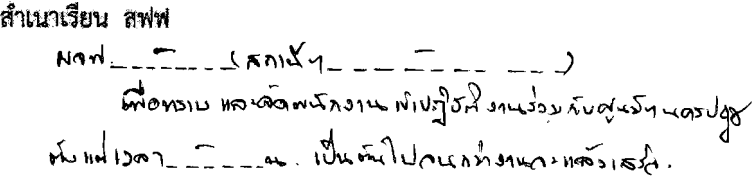 สำเนาเรียน สฟฟ
ผจฟ. - (สถานีฯ - )
เพื่อทราบ และจัดพนักงานเข้าปฏิบัติงานร่วมกับศูนย์ฯนครปฐม
ตั้งแต่เวลา - น. เป็นต้นไปจนกว่างานจะแล้วเสร็จ.